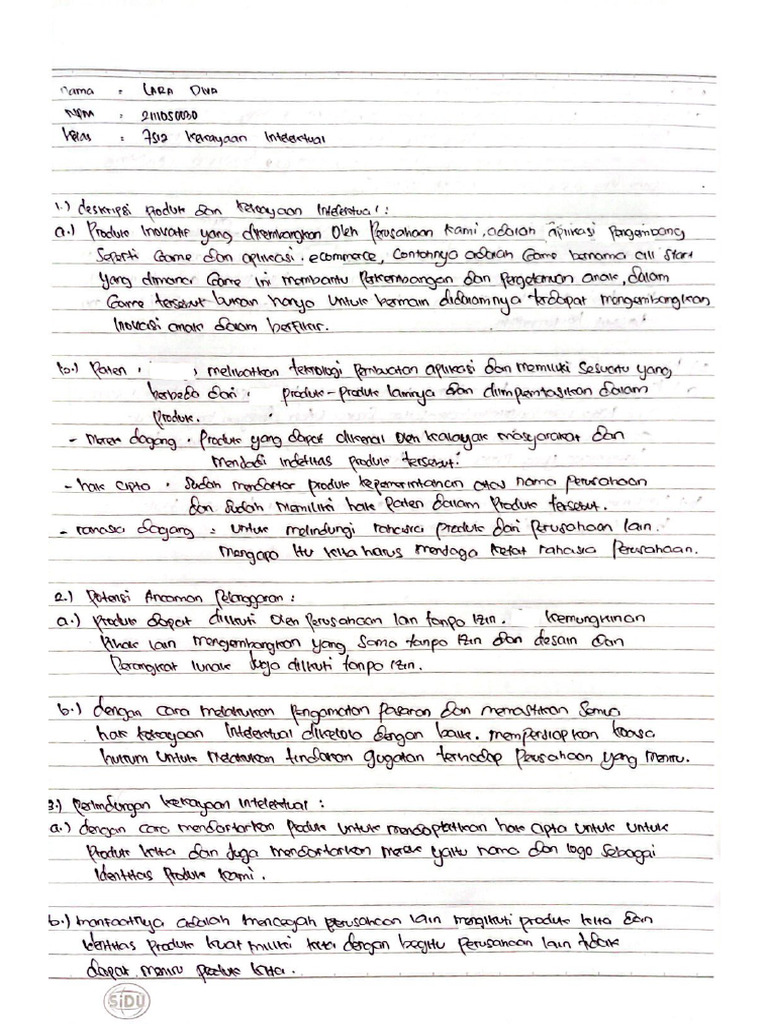 nama : LARA DIVA
NPM : 2111050030
kelas : 7512 kekayaan Intelektual
1.) deskripsi produk dan kekayaan Intelektual :
a.) Produk Inovatif yang dikembangkan oleh Perusahaan kami, adalah aplikasi Pengembang
Seperti Game dan aplikasi. ecommerce, Contohnya adalah Game bernama all Start
yang dimana Game ini membantu Perkembangan dan Pengetahuan anak, dalam
Game tersebut bukan hanya untuk bermain didalamnya terdapat mengembangkan
Inovasi anak dalam berfikir.
b.) Paten : , melibatkan teknologi pembuatan aplikasi dan memiliki Sesuatu yang
berbeda dari : produk-produk lainnya dan diimpemtasikan dalam
produk.
- Merek dagang . Produk yang dapat dikenal oleh kalayak masyarakat dan
menjadi indetitas produk tersebut.
- hak cipta . Sudah mendaftar produk kepemerintahan atas nama perusahaan
dan sudah memiliki hak Paten dalam Produk tersebut.
- rahasia dagang : untuk melindungi rahasia produk dari perusahaan lain.
mengapa itu kita harus menjaga ketat rahasia perusahaan.
2.) Potensi Ancaman Pelanggaran :
a.) Produk dapat diikuti oleh perusahaan lain tanpa izin. kemungkinan
Pihak lain mengembangkan yang sama tanpa izin dan desain dan
Perangkat lunak Juga diikuti tanpa izin.
b.) dengan cara melakukan pengamatan pasaran dan memastikan semua
hak kekayaan Intelektual dikelola dengan baik. mempersiapkan kuasa
hukum untuk melakukan tindakan gugatan terhadap perusahaan yang meniru.
3.) Perlindungan kekayaan intelektual :
a.) dengan cara mendaftarkan Produk untuk mendapatkan hak cipta untuk untuk
Produk kita dan Juga mendaftarkan merek yaitu nama dan logo sebagai
Identitas Produk kami.
b.) manfaatnya adalah mencegah perusahaan lain mengikuti produk kita dan
Identitas Produk kuat miliki kita dengan begitu perusahaan lain tidak
dapat meniru produk kita.
SiDU